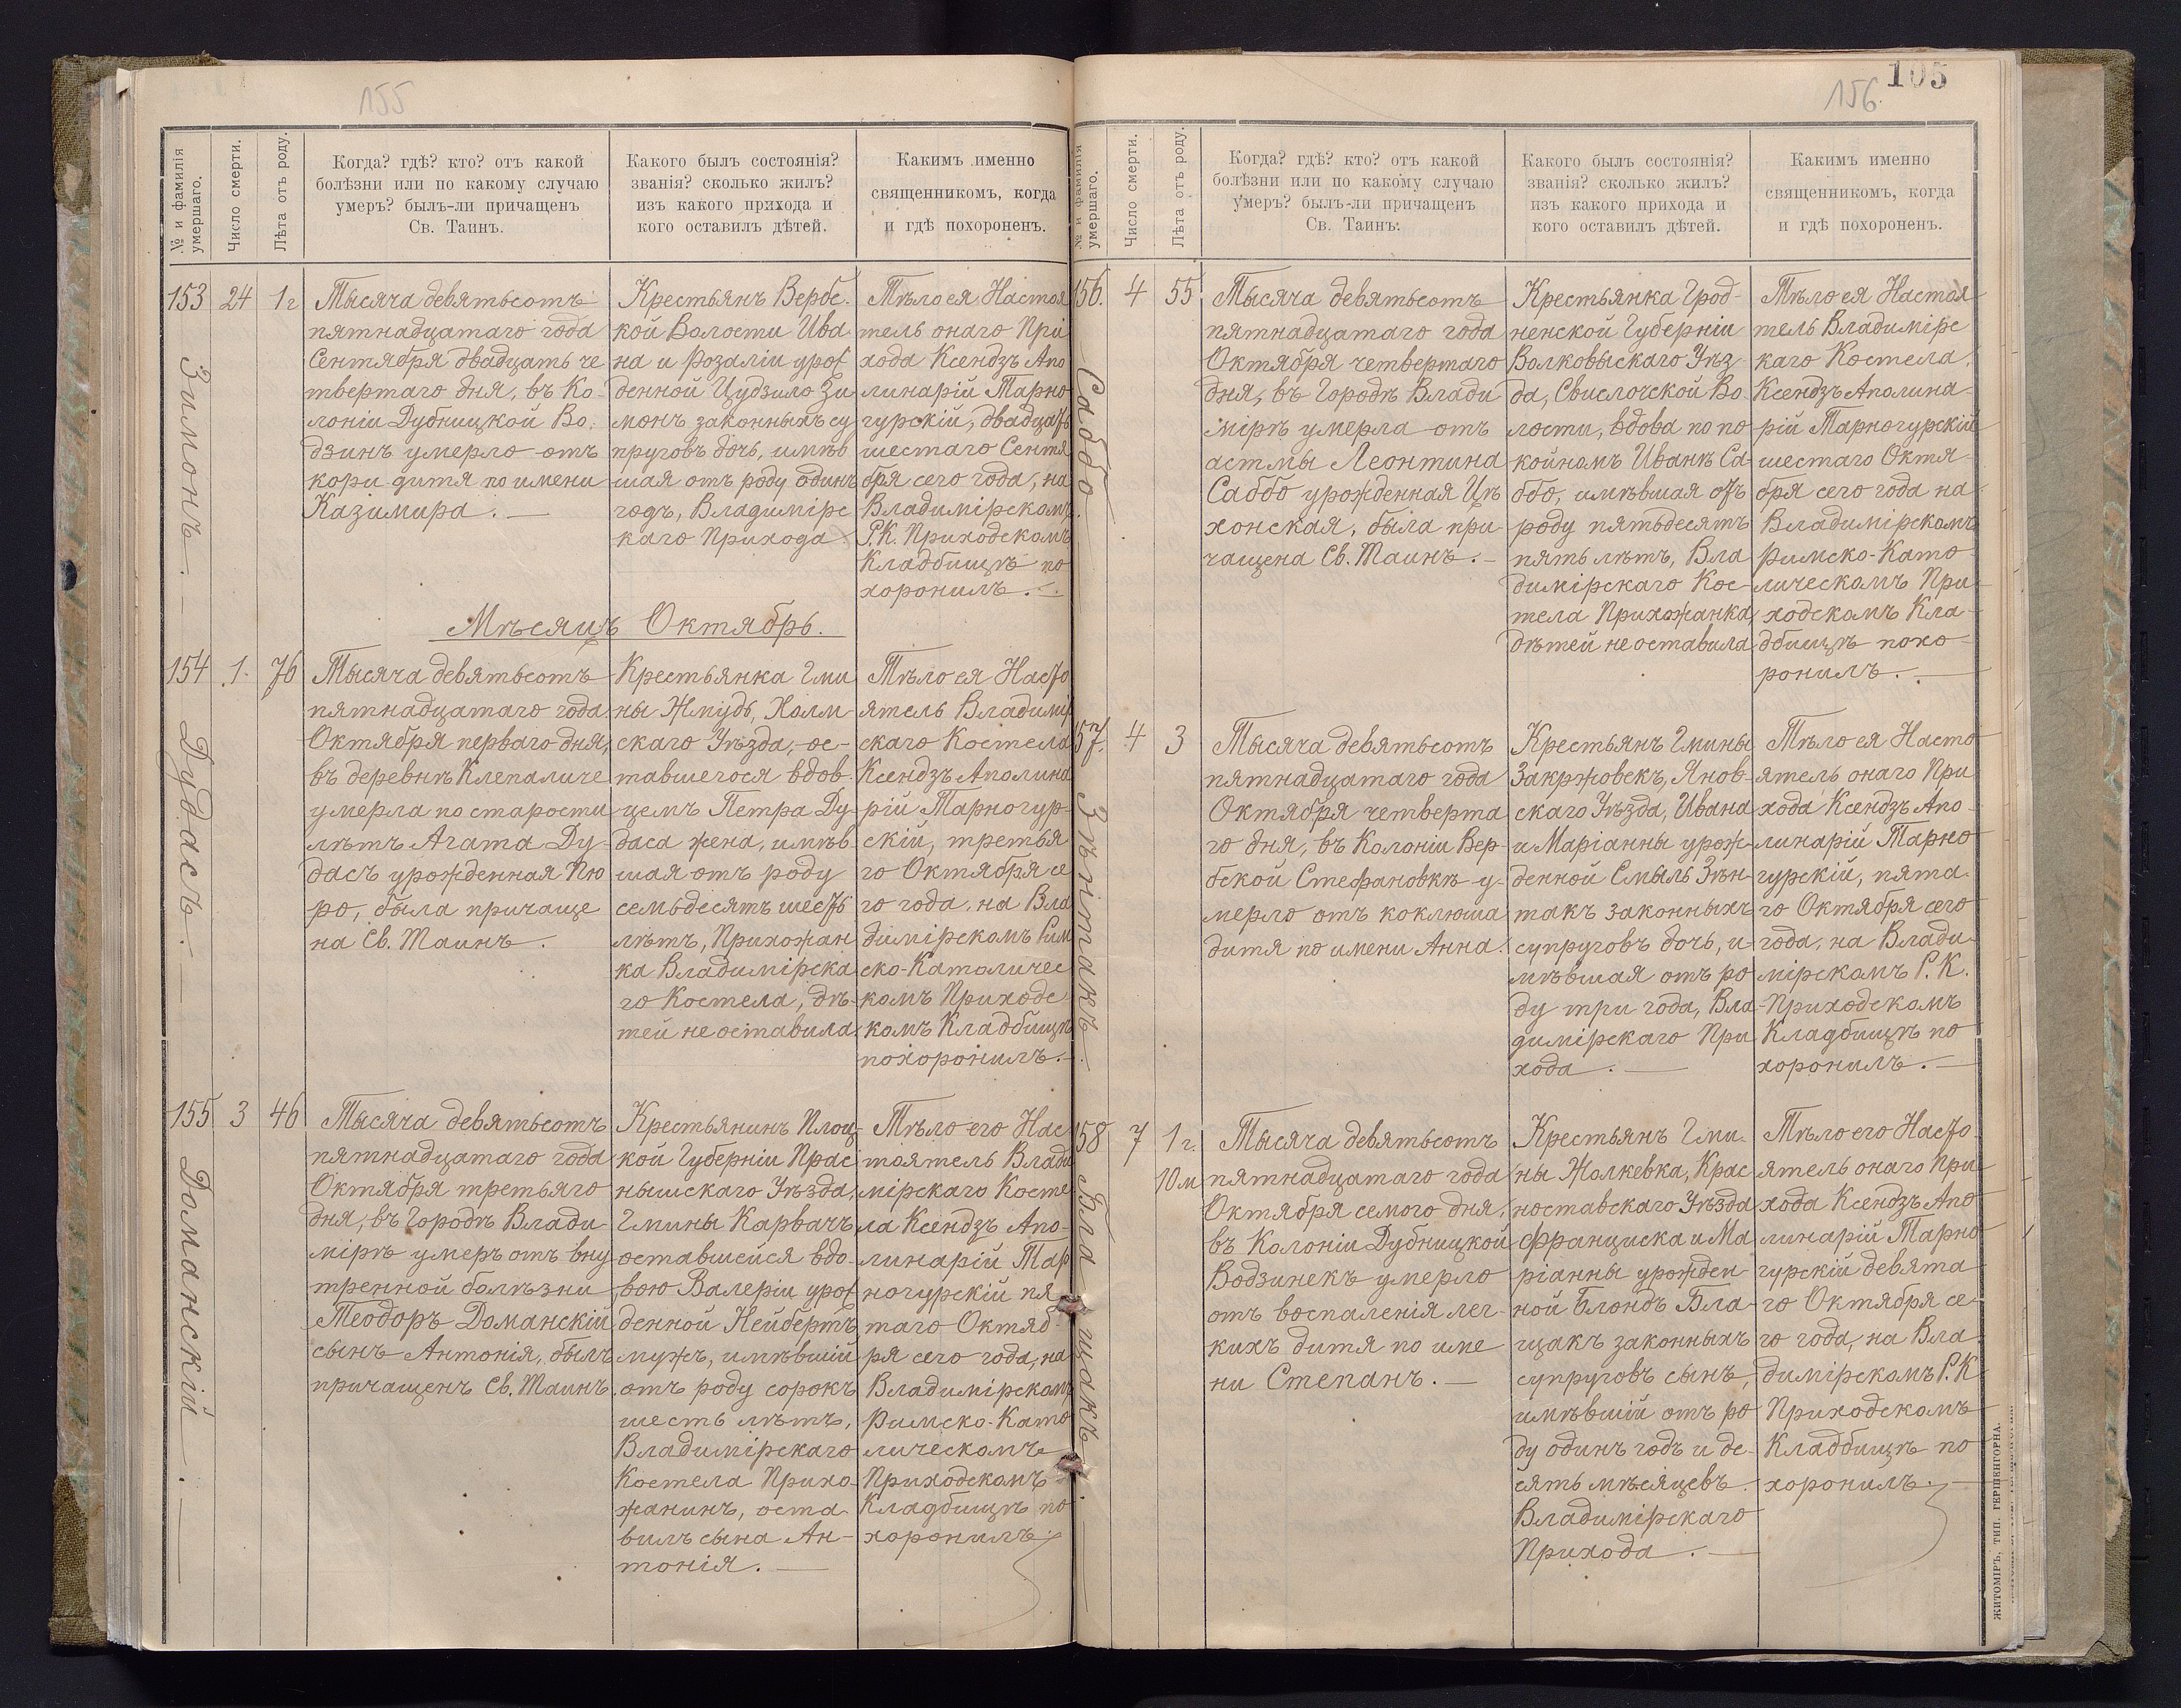 155
№ и фамилія умершаго.
Число смерти.
Лѣта отъ роду.
Когда? гдѣ? кто? отъ какой
болѣзни или по какому случаю
умеръ? былъ-ли причащенъ
Св. Таинъ.
Какого былъ состоянія?
званія? сколько жилъ?
изъ какого прихода и
кого оставилъ дѣтей.
Какимъ именно
священникомъ, когда
и гдѣ похороненъ.
153
Зимонъ.
24
1 г
Тысяча девятьсотъ
пятнадцатаго года
Сентября двадцать че
твертаго дня, въ Ко-
лоніи Дубницкой Во-
дзинъ умерло отъ
кори дитя по имени
Казимира. —
Крестьянъ Вербс-
кой Волости Ива-
на и Розаліи урож
денной Цудзило Зи
монъ законныхъ су
пруговъ дочь, имѣв
шая отъ роду одинъ
годъ, Владимірс
каго Прихода
Тѣло ея Настоя
тель онаго При
хода Ксендзъ Апо
линарій Тарно
гурскій, двадцать
шестаго Сентя
бря сего года, на
Владимірскомъ
Р.К. Приходскомъ
Кладбищѣ по
хоронилъ. —
Мѣсяцъ Октябрь.
154
Дудасъ. —
1.
76
Тысяча девятьсотъ
пятнадцатаго года
Октября перваго дня,
въ деревнѣ Клепаличе
умерла по старости
лѣтъ Агата Ду-
дасъ урожденная Пю
ро, была причаще
на Св. Таинъ.
Крестьянка Гми
ны Жмудь, Холм-
скаго Уѣзда, ос-
тавшегося вдов-
цемъ Петра Ду-
даса жена, имѣв-
шая отъ роду
семьдесятъ шесть
лѣтъ, Прихожан
ка Владимірска
го Костела, дѣ-
тей не оставила
Тѣло ея Насто
ятель Владимір
скаго Костела
Ксендзъ Аполина
рій Тарногур-
скій, третья
го Октября се
го года, на Вла
димірскомъ Рим
ско-Католичес
комъ Приходс
комъ Кладбищѣ
похоронилъ. —
155
Доманскій. —
3
46
Тысяча девятьсотъ
пятнадцатаго года
Октября третьяго
дня, въ Городѣ Влади-
мірѣ умеръ отъ вну
тренной болѣзни
Теодоръ Доманскій
сынъ Антонія, былъ
причащенъ Св. Таинъ.
Крестьянинъ Плоц-
кой Губерніи Прас
нышскаго Уѣзда,
Гмины Карвачъ
оставшейся вдо-
вою Валеріи урож
денной Нейбертъ
мужъ, имѣвшій
отъ роду сорокъ
шесть лѣтъ,
Владимірскаго
Костела Прихо-
жанинъ, оста-
вилъ сына Ан-
тонія. —
Тѣло его Нас
тоятель Влади
мірскаго Косте
ла Ксендзъ Апо-
линарій Тар
ногурскій пя
таго Октяб-
ря сего года, на
Владимірскомъ
Римско-Като
лическомъ
Приходскомъ
Кладбищѣ по
хоронилъ.
105
156.
№ и фамилія умершаго.
Число смерти.
Лѣта отъ роду.
Когда? гдѣ? кто? отъ какой
болѣзни или по какому случаю
умеръ? былъ-ли причащенъ
Св. Таинъ.
Какого былъ состоянія?
званія? сколько жилъ?
изъ какого прихода и
кого оставилъ дѣтей.
Какимъ именно
священникомъ, когда
и гдѣ похороненъ.
156.
Саббо.
4
55
Тысяча девятьсотъ
пятнадцатаго года
Октября четвертаго
дня, въ Городѣ Влади
мірѣ умерла отъ
астмы Леонтина
Саббо урожденная Цѣ
хонская, была при-
чащена Св. Таинъ. —
Крестьянка Грод-
ненской Губерніи
Волковыскаго Уѣз-
да, Свислочской Во-
лости, вдова по по
койномъ Иванѣ Са-
ббо, имѣвшая отъ
роду пятьдесятъ
пять лѣтъ, Вла
димірскаго Кос-
тела Прихожанка,
дѣтей не оставила
Тѣло ея Настоя
тель Владимірс
каго Костела,
Ксендзъ Аполина-
рій Тарногурскій
шестаго Октя-
бря сего года на
Владимірскомъ
Римско-Като
лическомъ При
ходскомъ Кла-
дбищѣ похо-
ронилъ. —
157.
Зѣнтакъ. —
4
3
Тысяча девятьсотъ
пятнадцатаго года
Октября четверта
го дня, въ Колоніи Вер-
бской Стефановкѣ у-
мерло отъ коклюша
дитя по имени Анна.
Крестьянъ Гмины
Закржовекъ, Янов-
скаго Уѣзда, Ивана
и Маріанны урож-
денной Смыль Зѣн-
такъ законныхъ
супруговъ дочь, и-
мѣвшая отъ ро
ду три года, Вла-
димірскаго При
хода. —
Тѣло ея Насто
ятель онаго При
хода Ксендзъ Апо-
линарій Тарно
гурскій, пята-
го Октября сего
года, на Влади-
мірскомъ Р. К.
Приходскомъ
Кладбищѣ по
хоронилъ. —
158
Блащакъ. —
7
1 г.
10 м
Тысяча девятьсотъ
пятнадцатаго года
Октября семого дня,
въ Колоніи Дубницкой
Водзинекъ умерло
отъ воспаленія лег-
кихъ дитя по име
ни Степанъ. —
Крестьянъ Гми-
ны Жолкевка, Крас
ноставскаго Уѣзда
Франциска и Ма
ріанны урожден-
ной Блондъ Бла-
щакъ законныхъ
супруговъ сынъ,
имѣвшій отъ ро
ду одинъ годъ и де-
сять мѣсяцевъ.
Владимірскаго
Прихода. —
Тѣло его Насто
ятель онаго При
хода Ксендзъ Апо
линарій Тарно
гурскій девята
го Октября се-
го года, на Вла
димірскомъ Р.К
Приходскомъ
Кладбищѣ по
хоронилъ. —
ЖИТОМІРЪ, ТИП. ГЕРШЕНГОРНА.